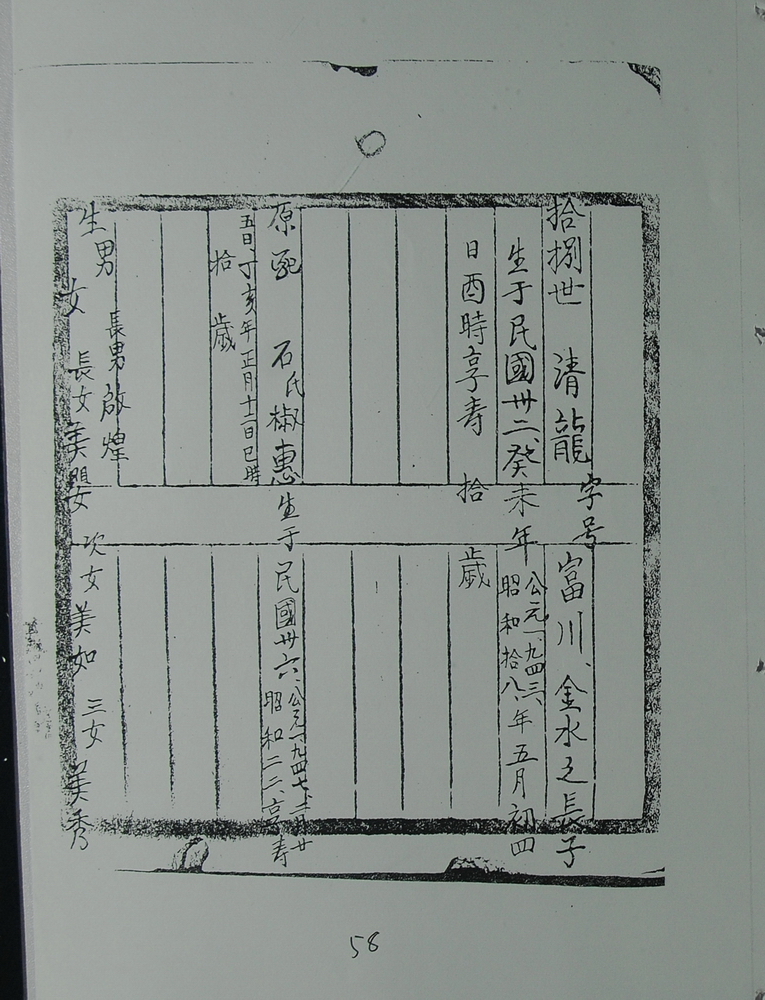 拾捌世 清龍 字号富川、金水之長子
生于民國卅二、癸未年 公元一九四三、昭和拾八、年五月初四
日酉時享寿 拾 歲
原配 石氏椒惠 生于民國卅六、公元一九四七、二月廿 昭和二二、享寿
五日、丁亥年正月十二日巳時
拾 歲
生男 長男啟煌
女 長女美嬰 次女美如 三女美秀
58